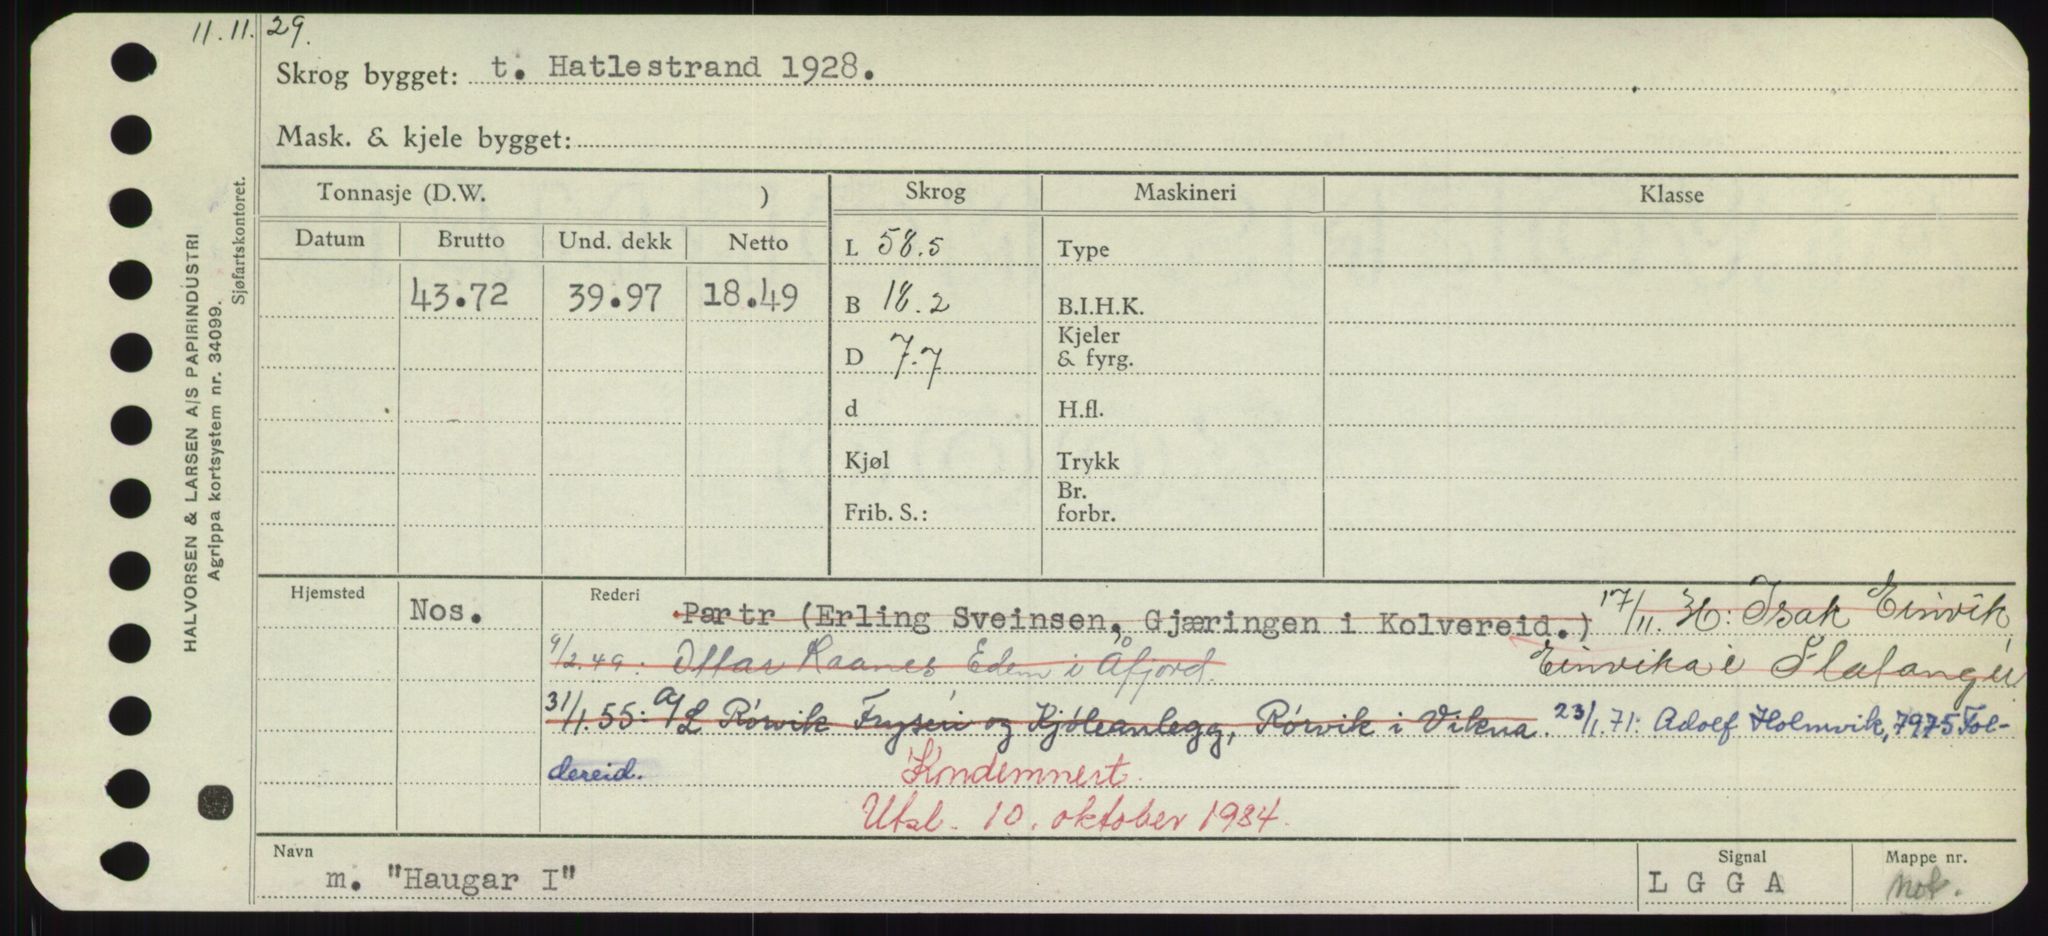 11.11.29.
Skrog bygget: t. Hatlestrand 1928.
Mask. & kjele bygget:
HALVORSEN & LARSEN A/S PAPIRINDUSTRI
Agrippa kortsystem nr. 34099.
Sjøfartskontoret.
Tonnasje (D.W. )
Skrog
Maskineri
Klasse
Datum Brutto Und. dekk Netto
43.72 39.97 18.49
L 58.5
B 18.2
D 7.7
d
Kjøl
Frib. S.:
Type
B.I.H.K.
Kjeler
& fyrg.
H.fl.
Trykk
Br.
forbr.
Hjemsted Nos.
Rederi Partr (Erling Sveinsen, Gjæringen i Kolvereid.) 17/11. 36: Isak Einvik,
Einvika i Flatanger
9/2.49: Ottar Raanes Eden i Åfjord.
31/1.55: A/L Rörvik Fryseri og Kjöleanlegg, Rörvik i Vikna. 23/1.71: Adolf Holmvik, 7975 Fol-
dereid.
Kondemnert.
Utsl. 10. oktober 1984.
Navn m. "Haugar I"
Signal LGGA
Mappe nr. not.